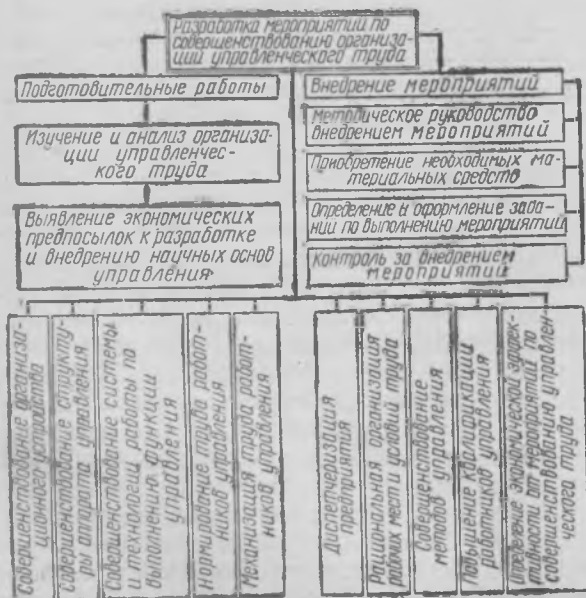 Разработка мероприятий по
совершенствованию организа-
ции управленческого труда
Подготовительные работы
Изучение и анализ организа-
ции управленчес-
кого труда
Выявление экономических
предпосылок к разработке
и внедрению научных основ
управления
Внедрение мероприятий
Методическое руководство
внедрением мероприятий
Приобретение необходимых ма-
териальных средств
Определение и оформление зада-
ний по выполнению мероприятий
Контроль за внедрением
мероприятий
Совершенствование организа-
ционного устройства
Совершенствование структу-
ры аппарата управления
Совершенствование системы
и технологии работы по
выполнению функции
управления
Нормирование труда работ-
ников управления
Механизация труда работ-
ников управления
Диспетчеризация
предприятия
Рациональная организация
рабочих мест и условий труда
Совершенствование
методов управления
Повышение квалификации
работников управления
Определение экономической эффек-
тивности от мероприятий по
совершенствованию управлен-
ческого труда